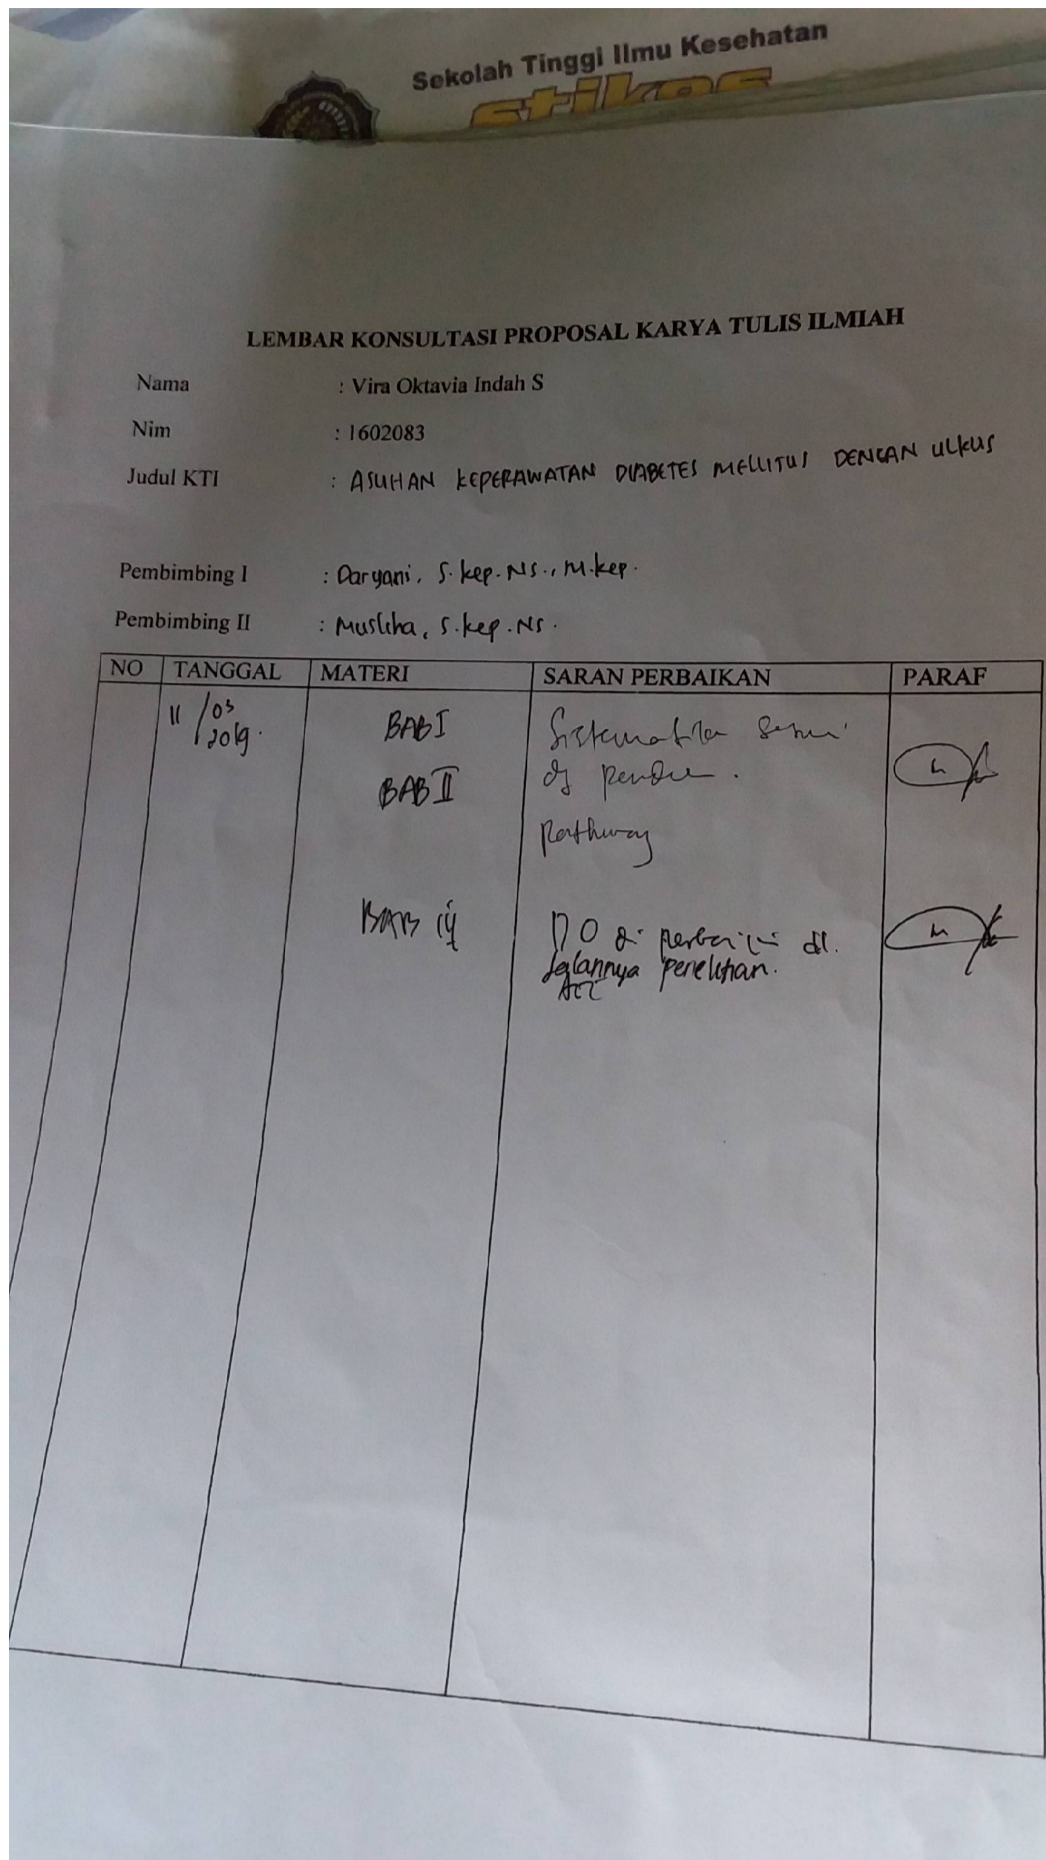 Sekolah Tinggi Ilmu Kesehatan
stikes
LEMBAR KONSULTASI PROPOSAL KARYA TULIS ILMIAH
Nama : Vira Oktavia Indah S
Nim : 1602083
Judul KTI : ASUHAN KEPERAWATAN DIABETES MELLITUS DENGAN ULKUS
Pembimbing I : Daryani, S.kep.Ns., M.kep.
Pembimbing II : Musliha, S.kep.Ns.
NO TANGGAL MATERI SARAN PERBAIKAN PARAF
11/03 BAB I Sistematika
2019.
BAB II
Pathway
BAB iii DO di perbaiki
Jalannya penelitian.
ACC